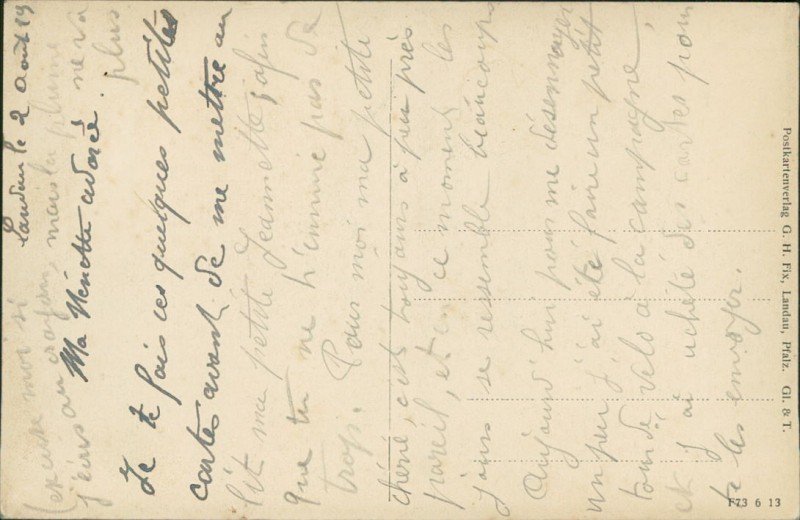 Landau le 2 Août 19
(excuse moi si
j'écris au crayon, mais la plume
ne va plus
Ma Nénette adorée.
Je te fais ces quelques petites
cartes avant de me mettre au
lit ma petite Jeannette, afin
que tu ne t'ennuie pas de
trop. Pour moi ma petite
chérie, c'est toujours à peu près
pareil, et en ce moment les
jours se ressemble beaucoup
Aujourd'hui pour me désennuyer
un peu j'ai été faire un petit
tour de vélo à la campagne,
et j'ai acheté des cartes pour
te les envoyer.
Postkartenverlag G. H. Fix, Landau, Pfalz. Gl. & T.
F73 6 13